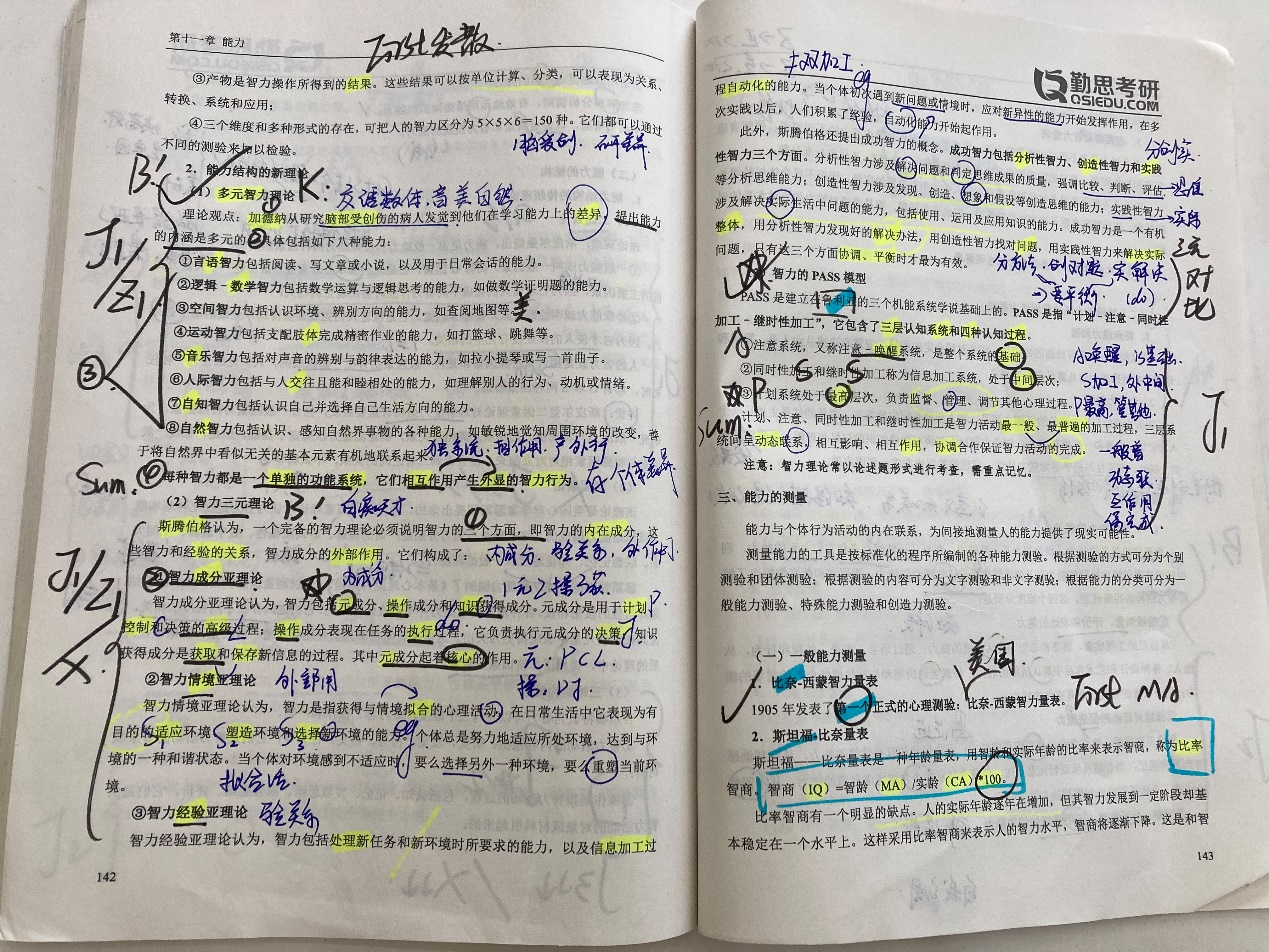 第十一章 能力
③产物是智力操作所得到的结果。这些结果可以按单位计算、分类，可以表现为关系、
转换、系统和应用；
④三个维度和多种形式的存在，可把人的智力区分为5×5×6＝150种。它们都可以通过
不同的测验来加以检验。
B!
2. 能力结构的新理论
（1）多元智力理论 K: 交语数体，音美自然
理论观点：加德纳从研究脑部受创伤的病人发觉到他们在学习能力上的差异，提出能力
的内涵是多元的 ② 具体包括如下八种能力：
J1/Z1
①言语智力包括阅读、写文章或小说，以及用于日常会话的能力。
②逻辑－数学智力包括数学运算与逻辑思考的能力，如做数学证明题的能力。
③空间智力包括认识环境、辨别方向的能力，如查阅地图等 美.
④运动智力包括支配肢体完成精密作业的能力，如打篮球、跳舞等。
⑤音乐智力包括对声音的辨别与韵律表达的能力，如拉小提琴或写一首曲子。
③
⑥人际智力包括与人交往且能和睦相处的能力，如理解别人的行为、动机或情绪。
⑦自知智力包括认识自己并选择自己生活方向的能力。
⑧自然智力包括认识、感知自然界事物的各种能力，如敏锐地觉知周围环境的改变，善
于将自然界中看似无关的基本元素有机地联系起来
Sum: ④
每种智力都是一个单独的功能系统，它们相互作用产生外显的智力行为。
（2）智力三元理论 B!
①
斯腾伯格认为，一个完备的智力理论必须说明智力的三个方面，即智力的内在成分，这
些智力和经验的关系，智力成分的外部作用。它们构成了： 内成分. 验关系, 外作用
J1/Z1
①智力成分亚理论 内成分
智力成分亚理论认为，智力包括元成分、操作成分和知识获得成分。元成分是用于计划 P.
控制和决策的高级过程；操作成分表现在任务的执行过程，它负责执行元成分的决策；知识
获得成分是获取和保存新信息的过程。其中元成分起着核心的作用。
②智力情境亚理论 外部用
智力情境亚理论认为，智力是指获得与情境拟合的心理活动，在日常生活中它表现为有
目的的适应环境、塑造环境和选择新环境的能力。个体总是努力地适应所处环境，达到与环
S1 S2 S3 eg
境的一种和谐状态。当个体对环境感到不适应时，要么选择另外一种环境，要么重塑当前环
境。
③智力经验亚理论 验关系
智力经验亚理论认为，智力包括处理新任务和新环境时所要求的能力，以及信息加工过
142
勤思考研
QSIEDU.COM
程自动化的能力。当个体初次遇到新问题或情境时，应对新异性的能力开始发挥作用，在多
次实践以后，人们积累了经验，自动化能力开始起作用。
此外，斯腾伯格还提出成功智力的概念。成功智力包括分析性智力、创造性智力和实践
性智力三个方面。分析性智力涉及解决问题和判定思维成果的质量，强调比较、判断、评估
等分析思维能力；创造性智力涉及发现、创造、想象和假设等创造思维的能力；实践性智力
涉及解决实际生活中问题的能力，包括使用、运用及应用知识的能力。成功智力是一个有机
整体，用分析性智力发现好的解决办法，用创造性智力找对问题，用实践性智力来解决实际
问题，只有这三个方面协调、平衡时才最为有效。
智力的PASS模型
PASS是建立在鲁利亚的三个机能系统学说基础上的。PASS是指“计划－注意－同时性
加工－继时性加工”，它包含了三层认知系统和四种认知过程。
①注意系统，又称注意－唤醒系统，是整个系统的基础
②同时性加工和继时性加工称为信息加工系统，处于中间层次；
③计划系统处于最高层次，负责监督、管理、调节其他心理过程。
Sum:
计划、注意、同时性加工和继时性加工是智力活动最一般、最普遍的加工过程，三层系
统间呈动态联系，相互影响、相互作用，协调合作保证智力活动的完成。
注意：智力理论常以论述题形式进行考查，需重点记忆。
J1
三、能力的测量
能力与个体行为活动的内在联系，为间接地测量人的能力提供了现实可能性。
测量能力的工具是按标准化的程序所编制的各种能力测验。根据测验的方式可分为个别
测验和团体测验；根据测验的内容可分为文字测验和非文字测验；根据能力的分类可分为一
般能力测验、特殊能力测验和创造力测验。
（一）一般能力测量
美国.
1. 比奈-西蒙智力量表
1905年发表了第一个正式的心理测验：比奈-西蒙智力量表。 first MA.
2. 斯坦福-比奈量表
斯坦福——比奈量表是一种年龄量表，用智龄和实际年龄的比率来表示智商，称为比率
智商。智商（IQ）=智龄（MA）/实龄（CA）*100。
比率智商有一个明显的缺点。人的实际年龄逐年在增加，但其智力发展到一定阶段却基
本稳定在一个水平上。这样采用比率智商来表示人的智力水平，智商将逐渐下降，这是和智
143